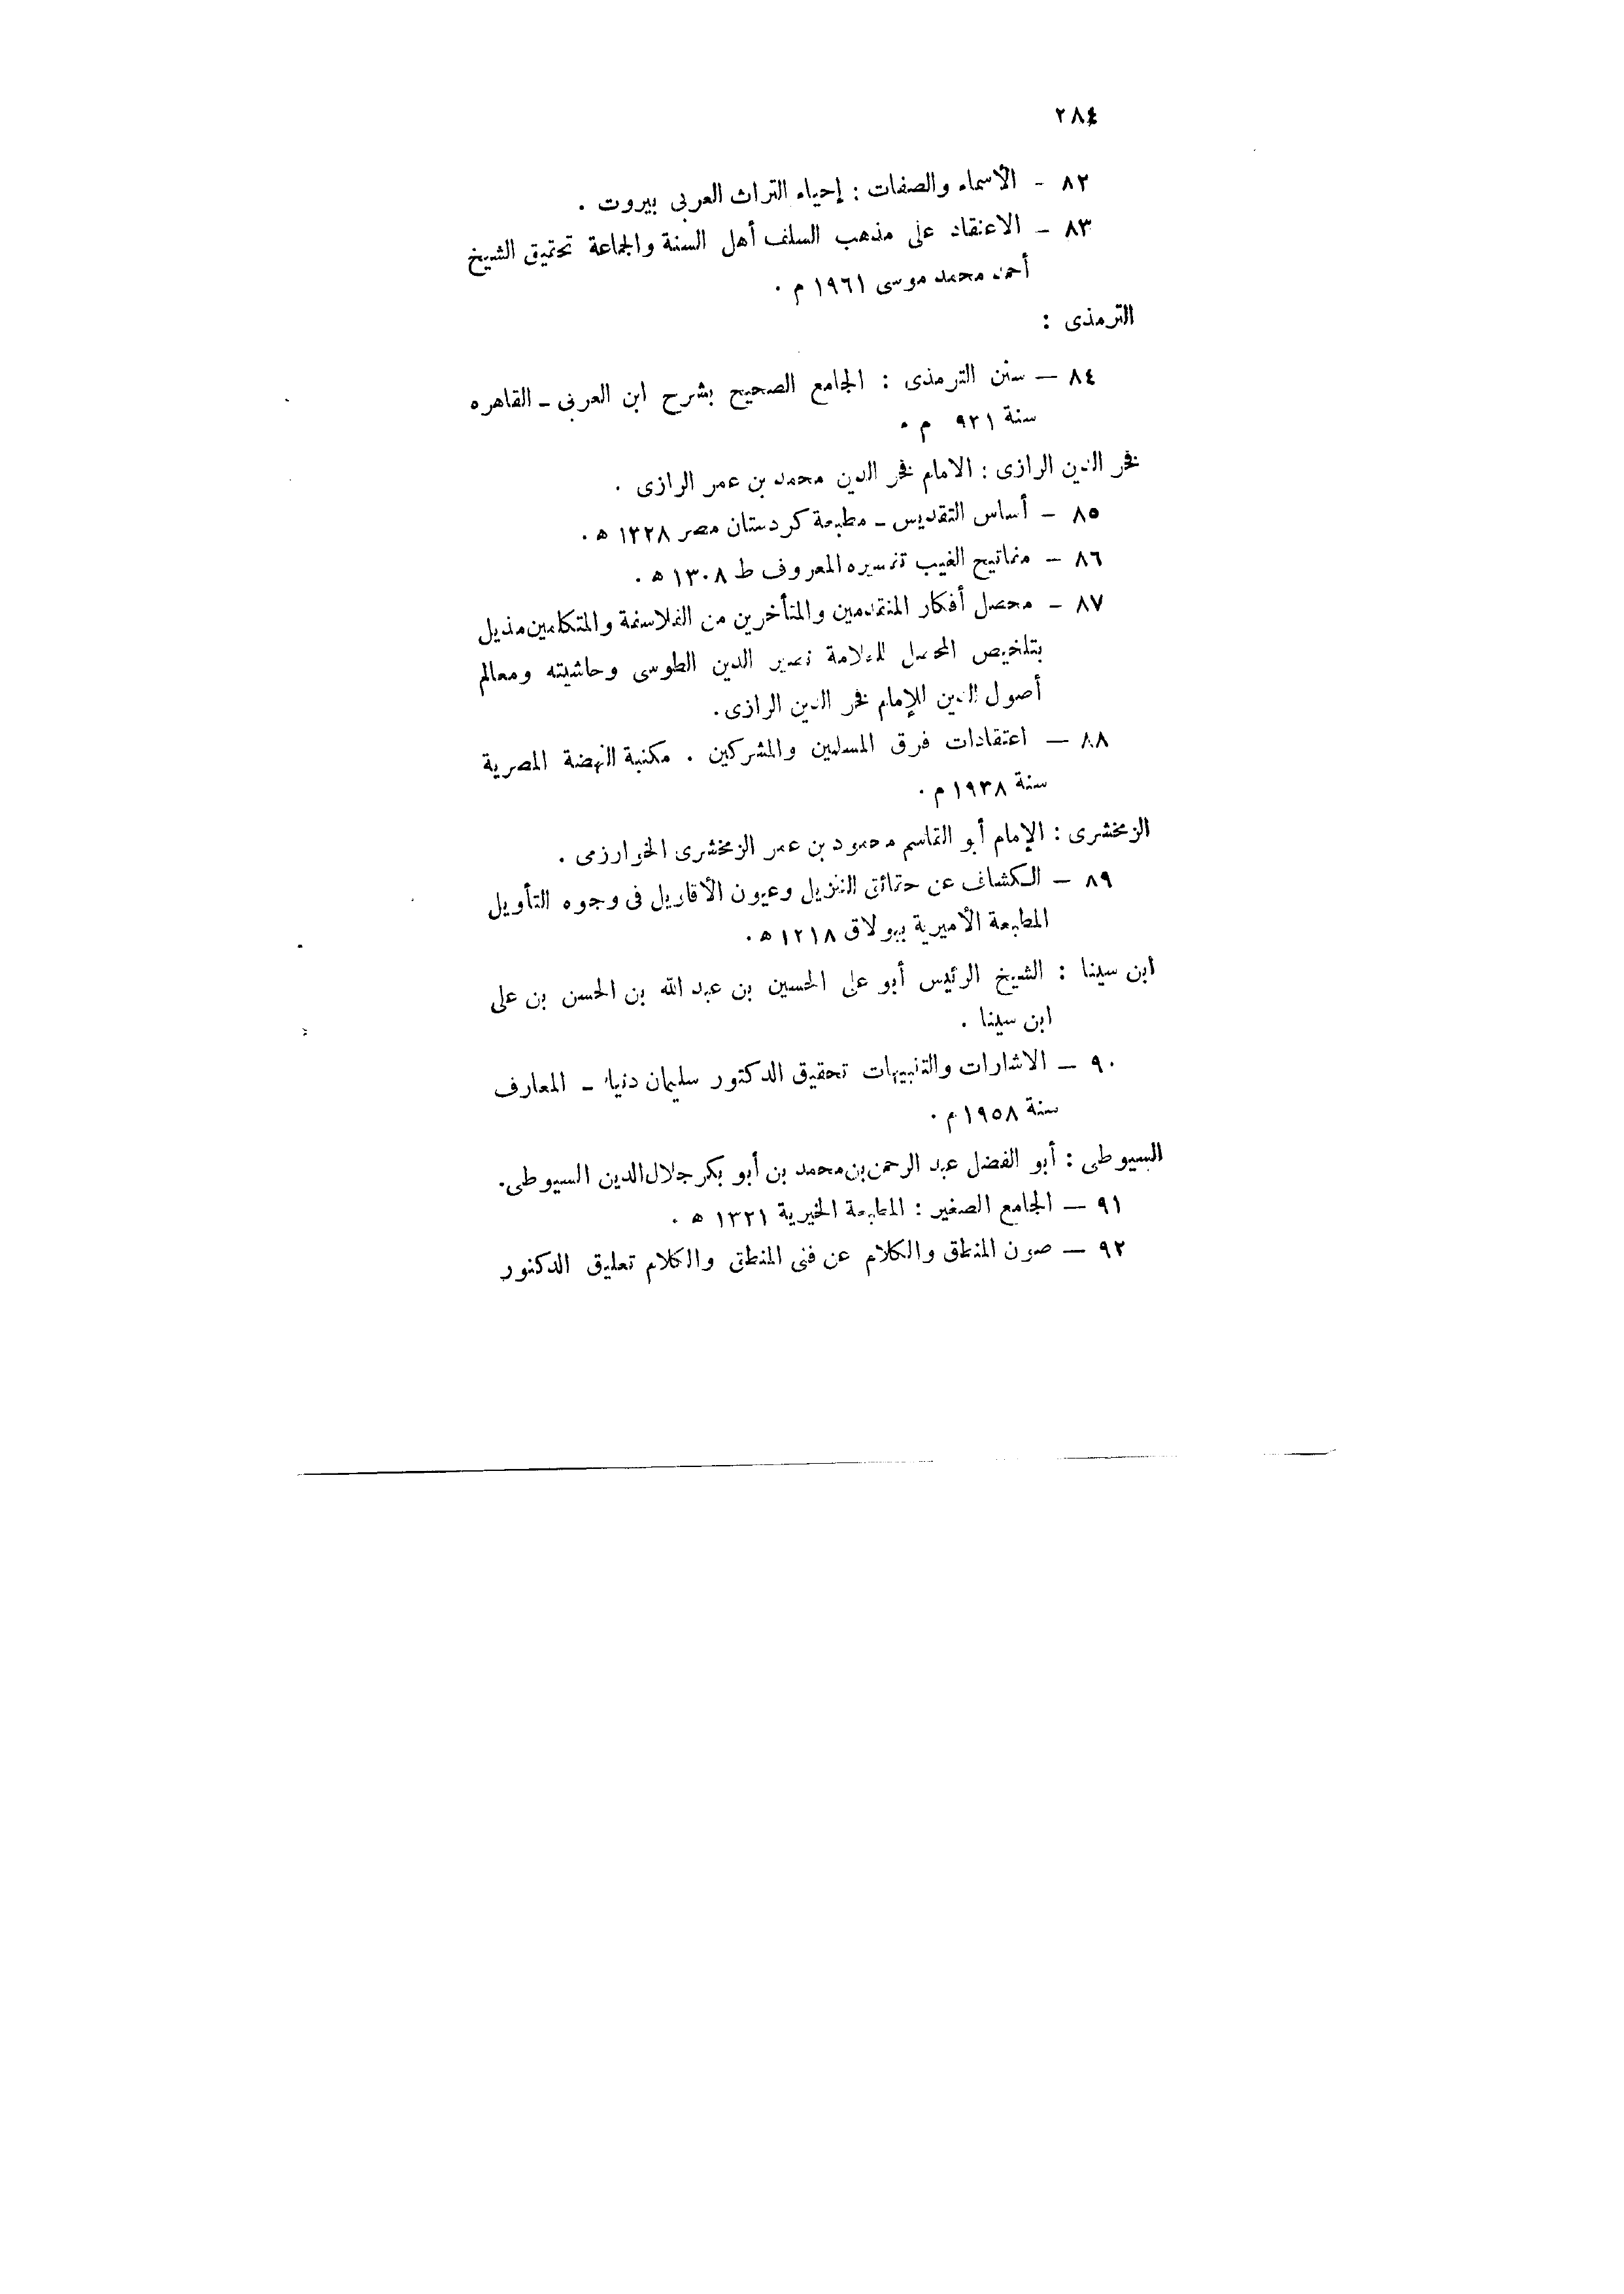 ٢٨٤
٨٢ - الأسماء والصفات : إحياء التراث العربى بيروت .
٨٣ - الاعتقاد على مذهب السلف أهل السنة والجماعة تحقيق الشيخ
أحمد محمد موسى ١٩٦١ م .
الترمذى :
٨٤ - سنن الترمذى : الجامع الصحيح بشرح ابن العربى - القاهره
سنة ٩٢١ م .
فخر الدين الرازى : الامام فخر الدين محمد بن عمر الرازى .
٨٥ - أساس التقديس - مطبعة كردستان مصر ١٣٢٨ ه .
٨٦ - مفاتيح الغيب تفسيره المعروف ط ١٣٠٨ ه .
٨٧ - محصل أفكار المتقدمين والمتأخرين من الفلاسفة والمتكلمين مذيل
بتلخيص المحصل للعلامة نصير الدين الطوسى وحاشيته ومعالم
أصول الدين للإمام فخر الدين الرازى .
٨٨ - اعتقادات فرق المسلمين والمشركين . مكتبة النهضة المصرية
سنة ١٩٣٨ م .
الزمخشرى : الإمام أبو القاسم محمود بن عمر الزمخشرى الخوارزمى .
٨٩ - الكشاف عن حقائق التنزيل وعيون الأقاويل فى وجوه التأويل
المطبعة الأميرية ببولاق ١٢١٨ ه .
ابن سينا : الشيخ الرئيس أبو على الحسين بن عبد الله بن الحسن بن على
ابن سينا .
٩٠ - الاشارات والتنبيهات تحقيق الدكتور سليمان دنيا - المعارف
سنة ١٩٥٨ م .
السيوطى : أبو الفضل عبد الرحمن بن محمد بن أبو بكر جلال الدين السيوطى .
٩١ - الجامع الصغير : المطبعة الخيرية ١٣٢١ ه .
٩٢ - صون المنطق والكلام عن فنى المنطق والكلام تعليق الدكتور